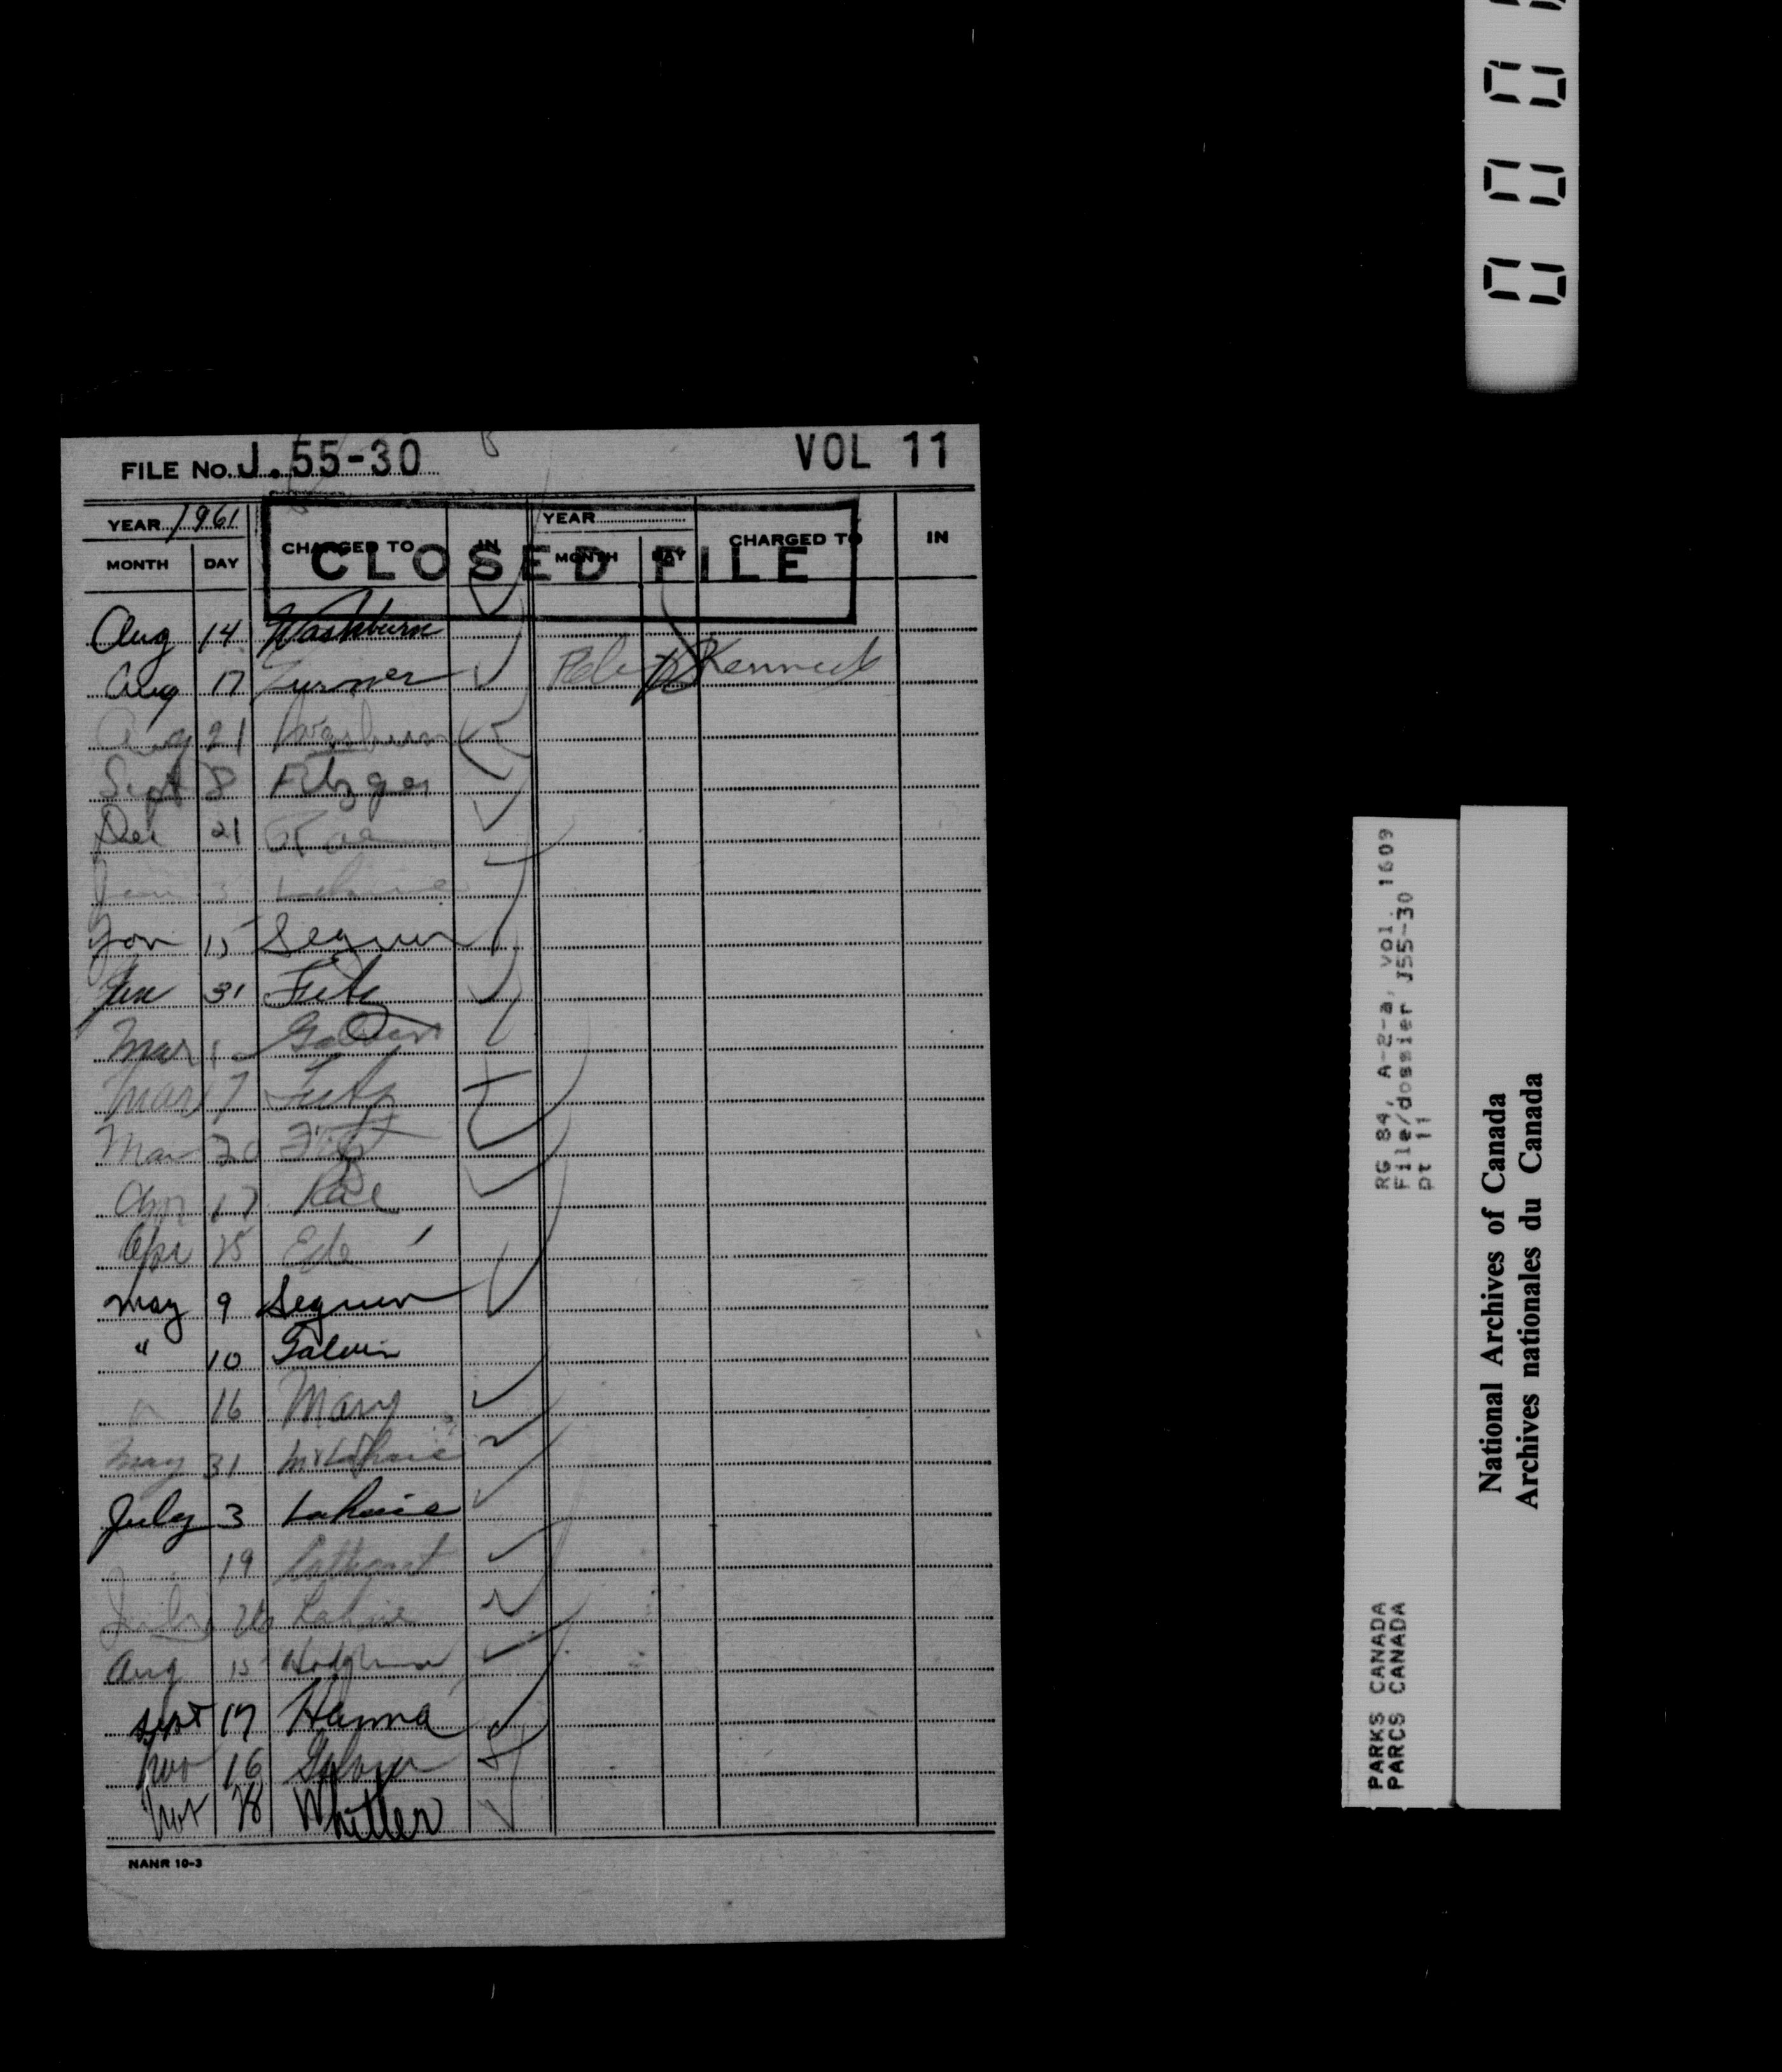 FILE No. J.55-30 VOL 11
YEAR 1961 YEAR
MONTH DAY CHARGED TO IN MONTH DAY CHARGED TO IN
CLOSED FILE
Aug 14 Washburn
Aug 17 Turner
Aug 21 Washburn
Sept 8 Fitzger
Dec 21 Rae
Jan 3
Jan 15 Seguin
Jan 31 Fitz
Mar 1 Galvin
Mar 7 Fitz
Mar 20 Fitz
Apr 17 Rae
Apr 25 Ede
May 9 Seguin
" 10 Galvin
" 16 Mary
May 31 Mr Lahaie
July 3 Lahaie
19
July 26 Lahaie
Aug 15
Sept 17 Hanna
Nov 16 Galvin
Nov 28 Whitter
Feb Kennedy
NANR 10-3
000
RG 84, A-2-a, vol. 1609
File/dossier J55-30
pt 11
PARKS CANADA
PARCS CANADA
National Archives of Canada
Archives nationales du Canada